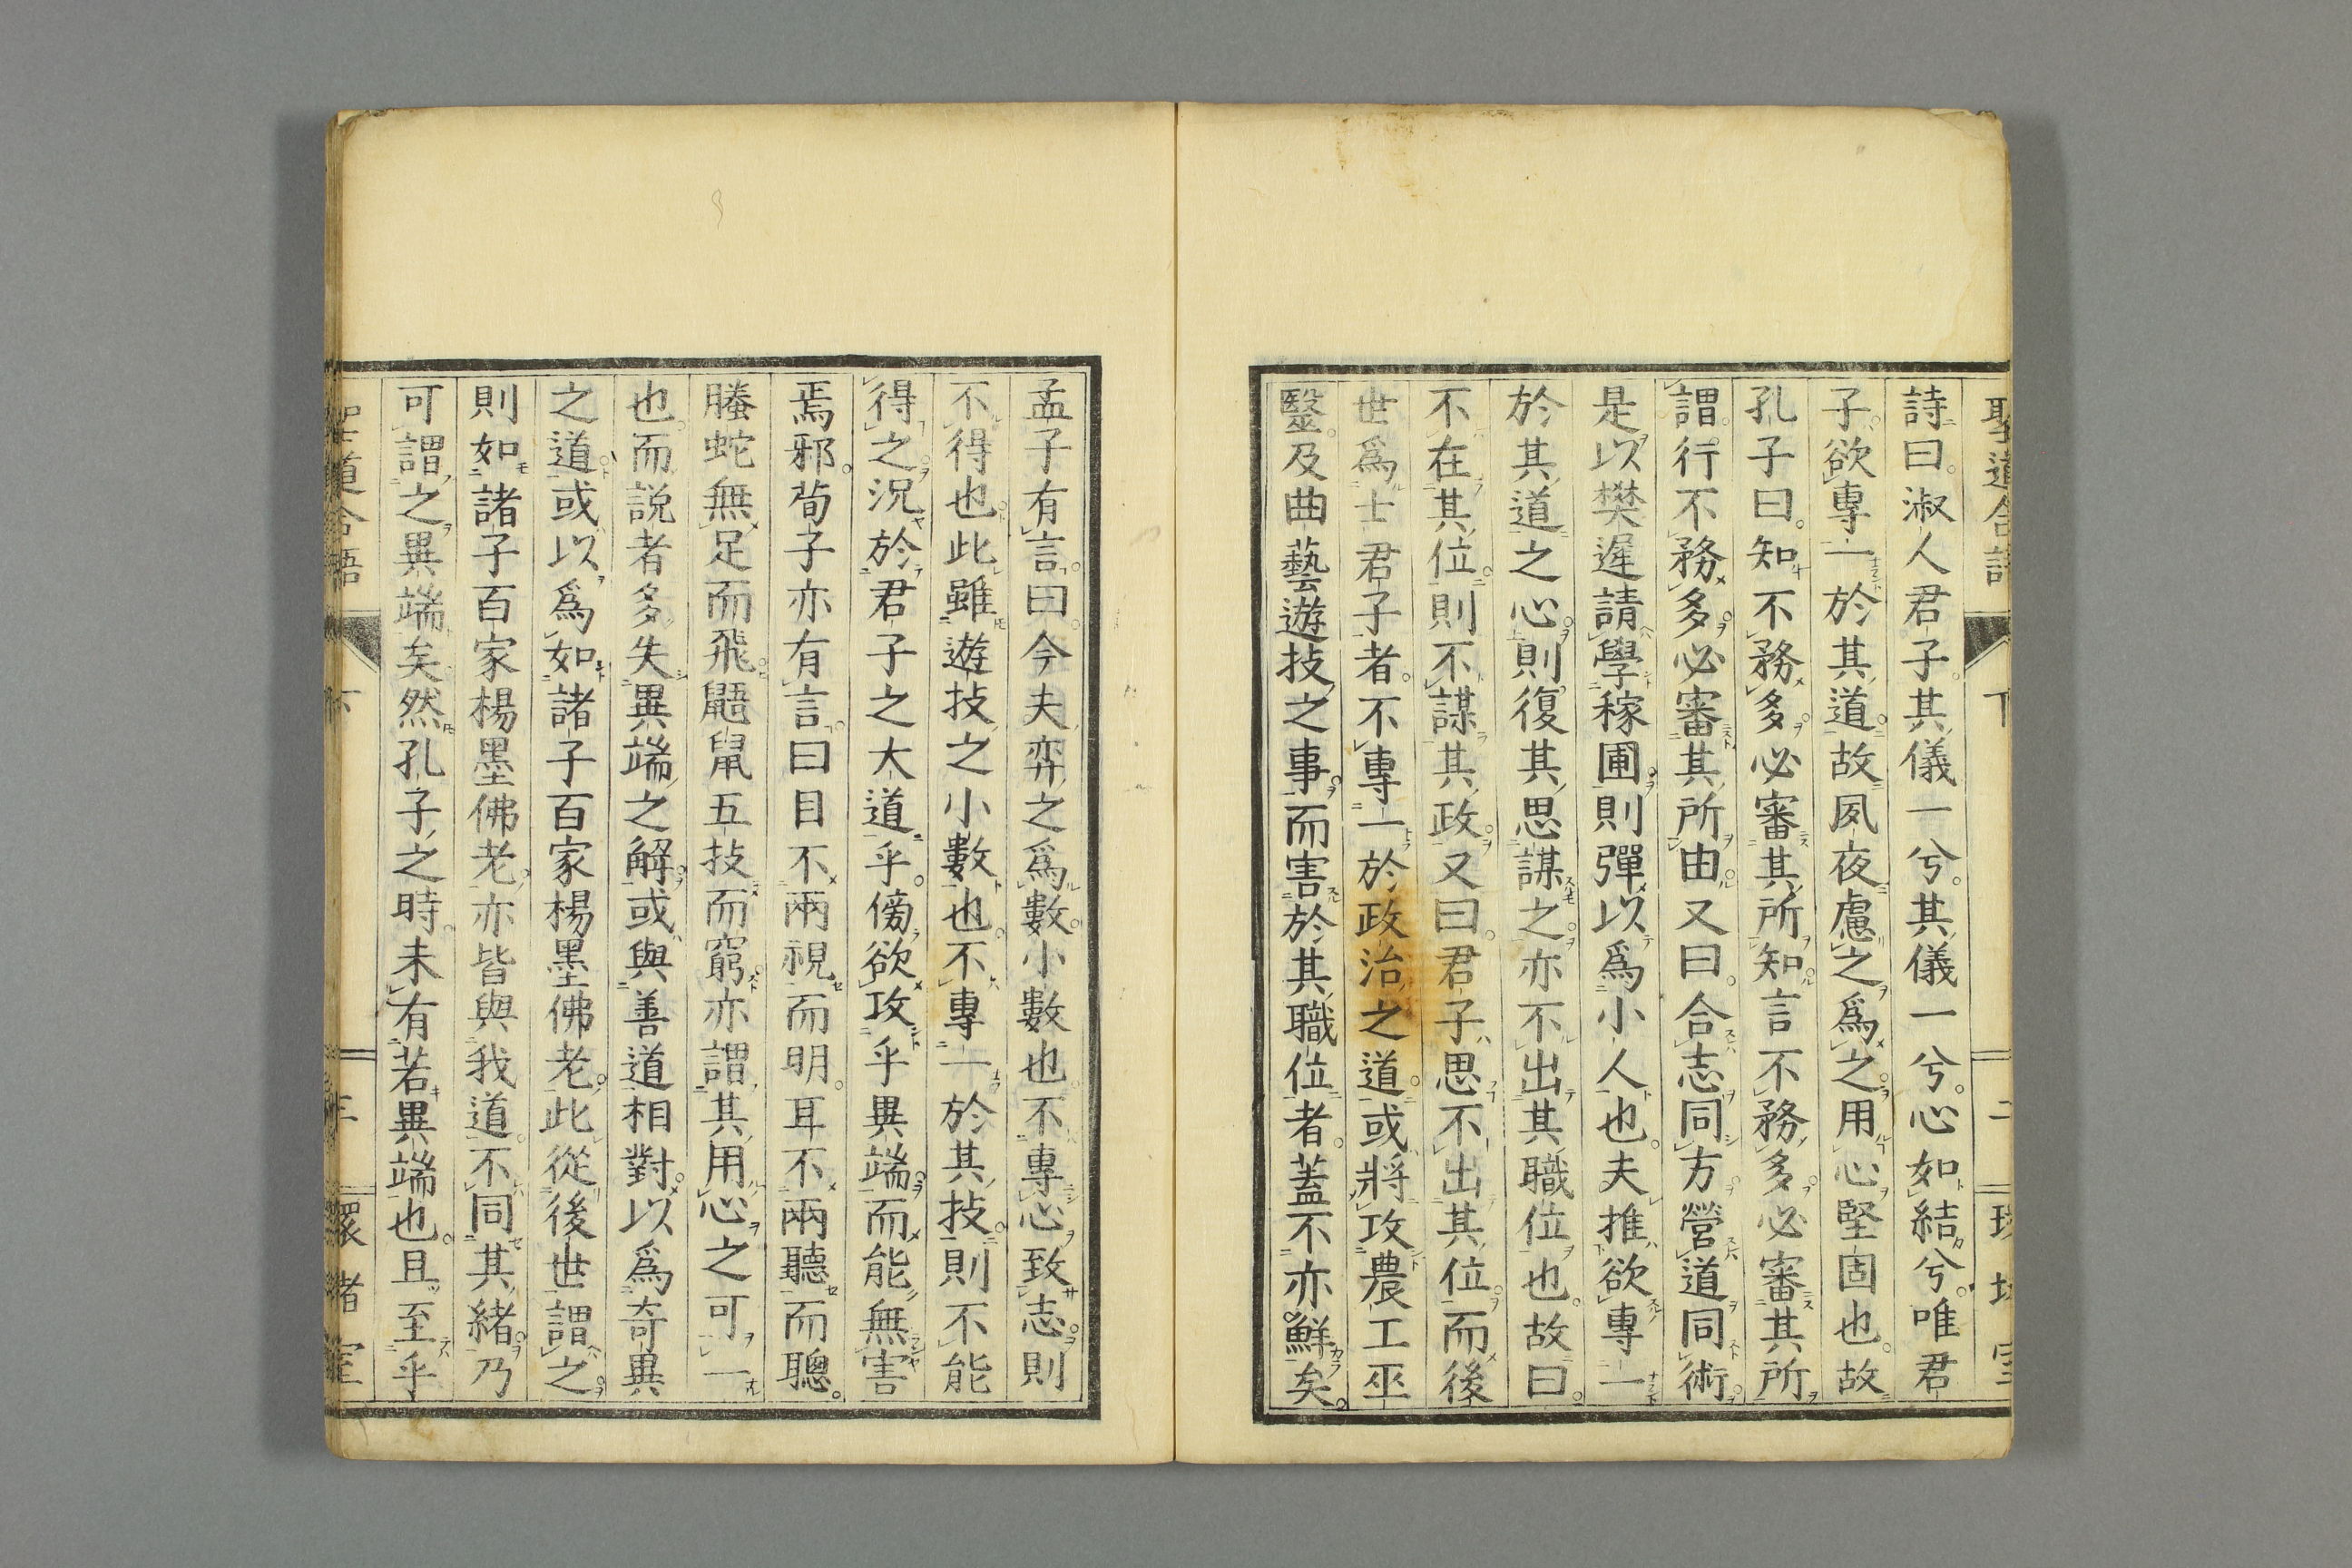 聖道合語 下
詩曰。淑人君子。其儀一兮。其儀一兮。心如結兮。唯君
子。欲專一於其道。故夙夜慮之爲之。用心堅固也。故
孔子曰。知不務多。必審其所知。言不務多。必審其所
謂。行不務多。必審其所由。又曰。合志同方。營道同術。
是以樊遲請學稼圃。則彈以爲小人也。夫推欲專一
於其道之心。則復其思謀之。亦不出其職位也。故曰。
不在其位。則不謀其政。又曰。君子思不出其位。而後
世爲士君子者。不專一於政治之道。或將攻農工巫
毉。及曲藝遊技之事。而害於其職位者。蓋不亦鮮矣。
孟子有言。曰。今夫弈之爲數。小數也。不專心致志。則
不得也。此雖遊技之小數也。不專一於其技。則不能
得之。況於君子之大道乎。傍欲攻乎異端。而能無害
焉邪。荀子亦有言。曰目不兩視而明。耳不兩聽而聰。
螣蛇無足而飛。鼯鼠五技而窮。亦謂其用心之可一
也。而說者多失異端之解。或與善道相對。以爲奇異
之道。或以爲如諸子百家楊墨佛老。此從後世謂之。
則如諸子百家楊墨佛老。亦皆與我道。不同其緒。乃
可謂之異端矣。然孔子之時。未有若異端也。且至乎
聖道合語 下 環堵室